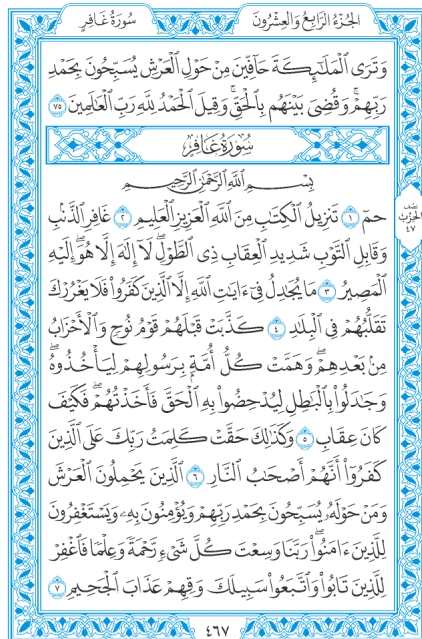 الجُزْءُ الرَّابِعُ وَالعِشْرُونَ
سُورَةُ غَافِرٍ
وَتَرَى ٱلْمَلَـٰٓئِكَةَ حَآفِّينَ مِنْ حَوْلِ ٱلْعَرْشِ يُسَبِّحُونَ بِحَمْدِ
رَبِّهِمْ ۖ وَقُضِىَ بَيْنَهُم بِٱلْحَقِّ وَقِيلَ ٱلْحَمْدُ لِلَّهِ رَبِّ ٱلْعَـٰلَمِينَ ٧٥
سُورَةُ غَافِرٍ
بِسْمِ ٱللَّهِ ٱلرَّحْمَـٰنِ ٱلرَّحِيمِ
حمٓ ١ تَنزِيلُ ٱلْكِتَـٰبِ مِنَ ٱللَّهِ ٱلْعَزِيزِ ٱلْعَلِيمِ ٢ غَافِرِ ٱلذَّنۢبِ
وَقَابِلِ ٱلتَّوْبِ شَدِيدِ ٱلْعِقَابِ ذِى ٱلطَّوْلِ ۖ لَآ إِلَـٰهَ إِلَّا هُوَ ۖ إِلَيْهِ
ٱلْمَصِيرُ ٣ مَا يُجَـٰدِلُ فِىٓ ءَايَـٰتِ ٱللَّهِ إِلَّا ٱلَّذِينَ كَفَرُوا۟ فَلَا يَغْرُرْكَ
تَقَلُّبُهُمْ فِى ٱلْبِلَـٰدِ ٤ كَذَّبَتْ قَبْلَهُمْ قَوْمُ نُوحٍ وَٱلْأَحْزَابُ
مِنۢ بَعْدِهِمْ ۖ وَهَمَّتْ كُلُّ أُمَّةٍۭ بِرَسُولِهِمْ لِيَأْخُذُوهُ ۖ
وَجَـٰدَلُوا۟ بِٱلْبَـٰطِلِ لِيُدْحِضُوا۟ بِهِ ٱلْحَقَّ فَأَخَذْتُهُمْ ۖ فَكَيْفَ
كَانَ عِقَابِ ٥ وَكَذَٰلِكَ حَقَّتْ كَلِمَتُ رَبِّكَ عَلَى ٱلَّذِينَ
كَفَرُوٓا۟ أَنَّهُمْ أَصْحَـٰبُ ٱلنَّارِ ٦ ٱلَّذِينَ يَحْمِلُونَ ٱلْعَرْشَ
وَمَنْ حَوْلَهُۥ يُسَبِّحُونَ بِحَمْدِ رَبِّهِمْ وَيُؤْمِنُونَ بِهِۦ وَيَسْتَغْفِرُونَ
لِلَّذِينَ ءَامَنُوا۟ رَبَّنَا وَسِعْتَ كُلَّ شَىْءٍ رَّحْمَةً وَعِلْمًا فَٱغْفِرْ
لِلَّذِينَ تَابُوا۟ وَٱتَّبَعُوا۟ سَبِيلَكَ وَقِهِمْ عَذَابَ ٱلْجَحِيمِ ٧
نصف
الحزب
٤٧
٤٦٧